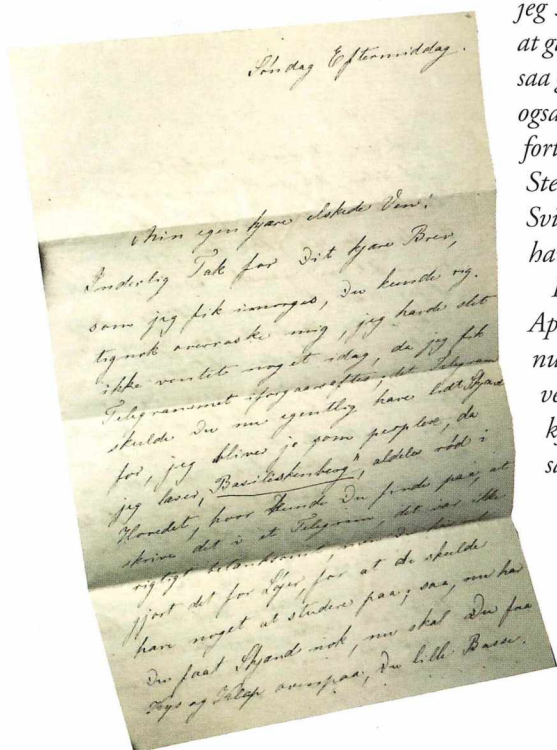 Søndag Eftermiddag.
Min egen kjære elskede Ven!
Inderlig Tak for Dit kjære Brev,
som jeg fik imorges, Du kunde rig-
tignok overraske mig, jeg havde slet
ikke ventet noget idag, da jeg fik
Telegrammet iforgaarsaftes, det Telegram
skulde Du nu egentlig have lidt Skjænd
for, jeg bliver jo som peoplex, da
jeg læser, "Basiliskenberg", aldeles rød i
Hovedet, hvor kunde Du finde paa, at
skrive det i et Telegram, det var ikke
rigtigt betænksomt, men Du
gjort det for Løjer, for at de skulde
have noget at studere paa; saa, nu har
Du faaet Skjænds nok, nu skal Du faa
Kys og Klap ovenpaa, Du lille Basse.
jeg
at g
saa
ogsa
fort
Ste
Svi
ha
Ap
nu
ve
k
sa